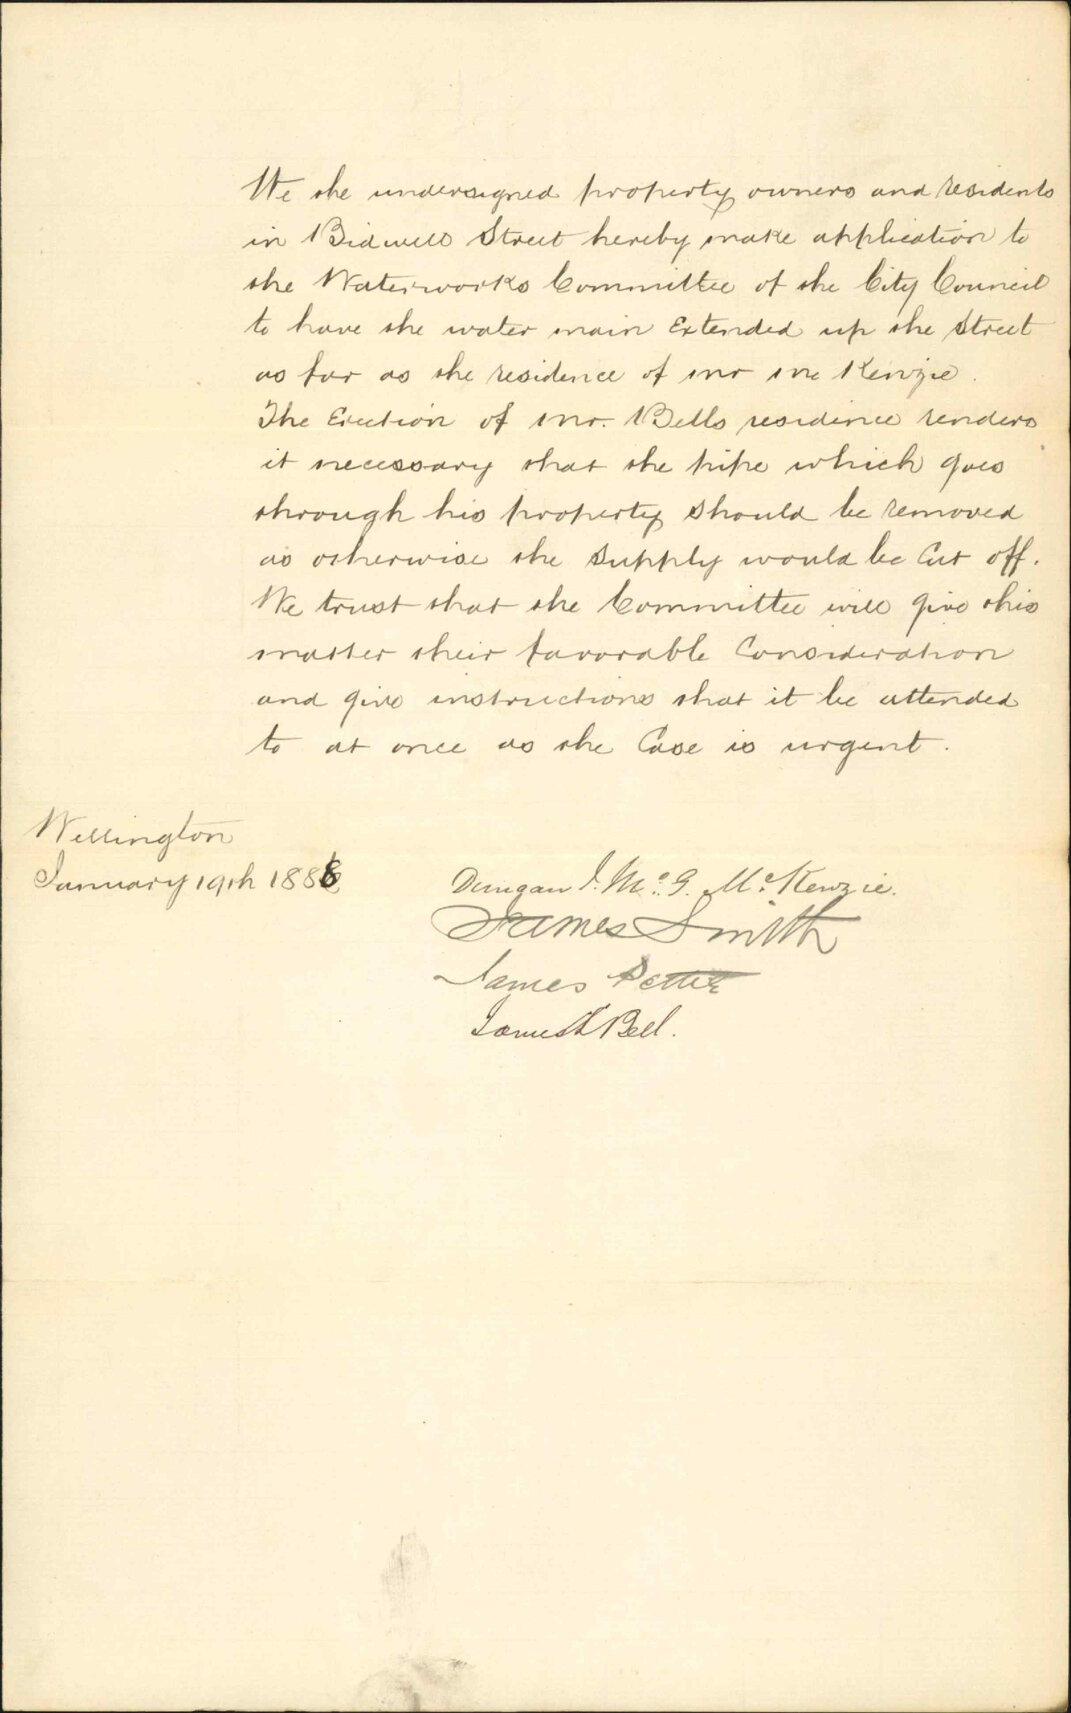 We the undersigned property owners and residents
in Bidwell Street hereby make application to
the Waterworks Committee of the City Council
to have the water main Extended up the Street
as far as the residence of Mr McKenzie.
The Erection of Mr. Bells residence renders
it necessary that the pipe which goes
through his property should be removed
as otherwise the supply would be Cut off.
We trust that the Committee will give this
matter their favorable Consideration
and give instructions that it be attended
to at once as the Case is urgent.
Wellington
January 19th 1888
Duncan J. McG. McKenzie.
James Smith
James
James Bell.